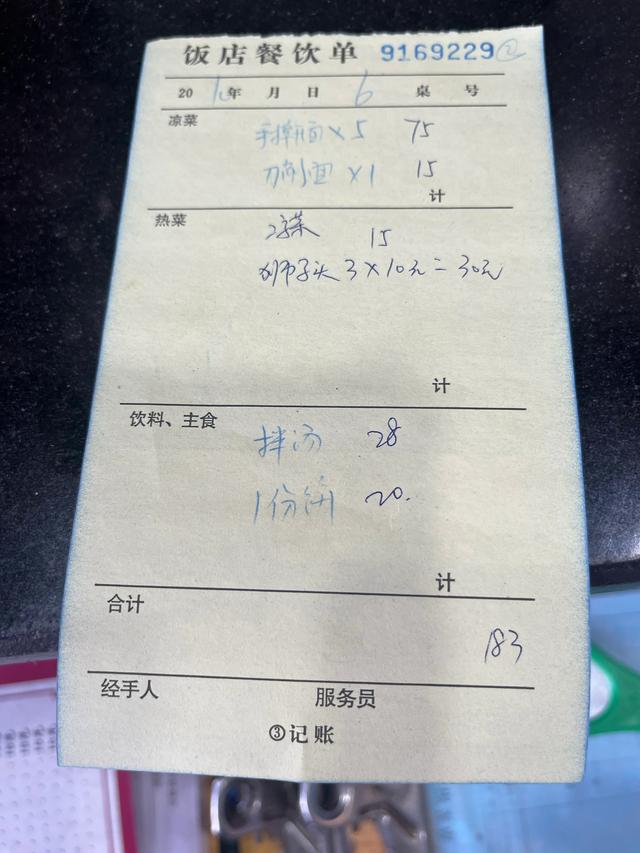 饭店餐饮单 9169229 ②
20 10 年 月 日 6 桌 号
凉菜
手擀面 x 5 75
刀削面 x 1 15
计
热菜
15
狮子头 3 x 10元 = 30元
计
饮料、主食
拌汤 28
1份饼 20.
计
合计
183
经手人 服务员
③记账